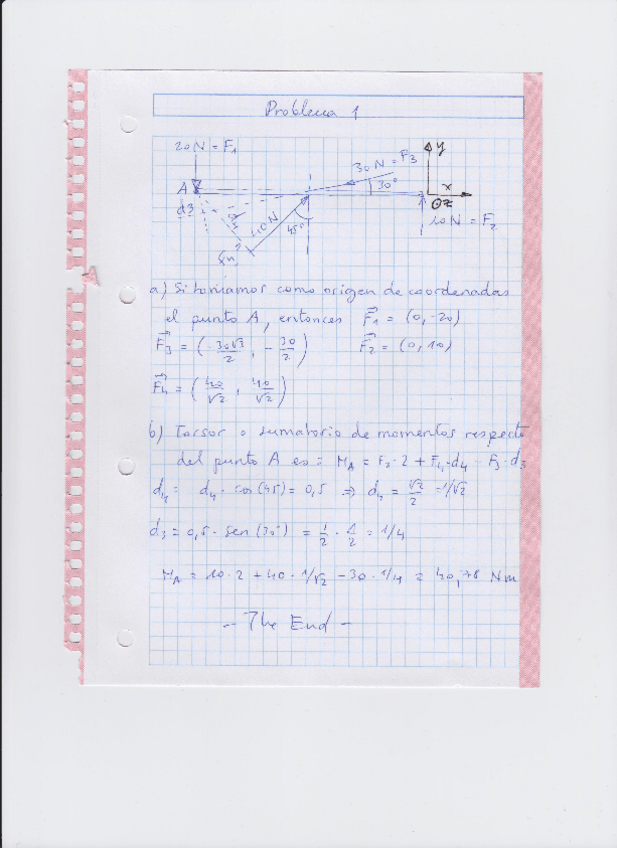 Problema 1
20N = F₁
y
30N = F₃
A
30°
x
d3
d₄
z
40N
45°
10N = F₂
F₄
a) Si tomamos como origen de coordenadas
el punto A, entonces F₁⃗ = (0, -20)
F₃⃗ = (-30√3/2, -30/2) F₂⃗ = (0, 10)
F₄⃗ = (40/√2, 40/√2)
b) Torsor o sumatorio de momentos respecto
del punto A es: M_A = F₂·2 + F₄·d₄ - F₃·d₃
d₄ = d₄·cos(45) = 0,5 ⇒ d₄ = √2/2 = 1/√2
d₃ = 0,5·sen(30°) = 1/2 · 1/2 = 1/4
M_A = 10·2 + 40·1/√2 - 30·1/4 = 40,78 Nm
-- The End -